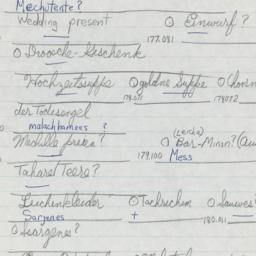 Mechutente?
Wedding present O Einwurf?
177.081
O Droosche-Geschenk
Hochzeitssuppe O goldne Suppe O Chosn
178.071 178072
der Todesengel
malachhamoves ?
Mechille preien? O (Lencha) Bar-Minn? (Au
179.100 Mess
Taharel Teere?
Leichenkleider O Tachrichim O Sauwes
Sargenes + 180.011
O Sargenes?